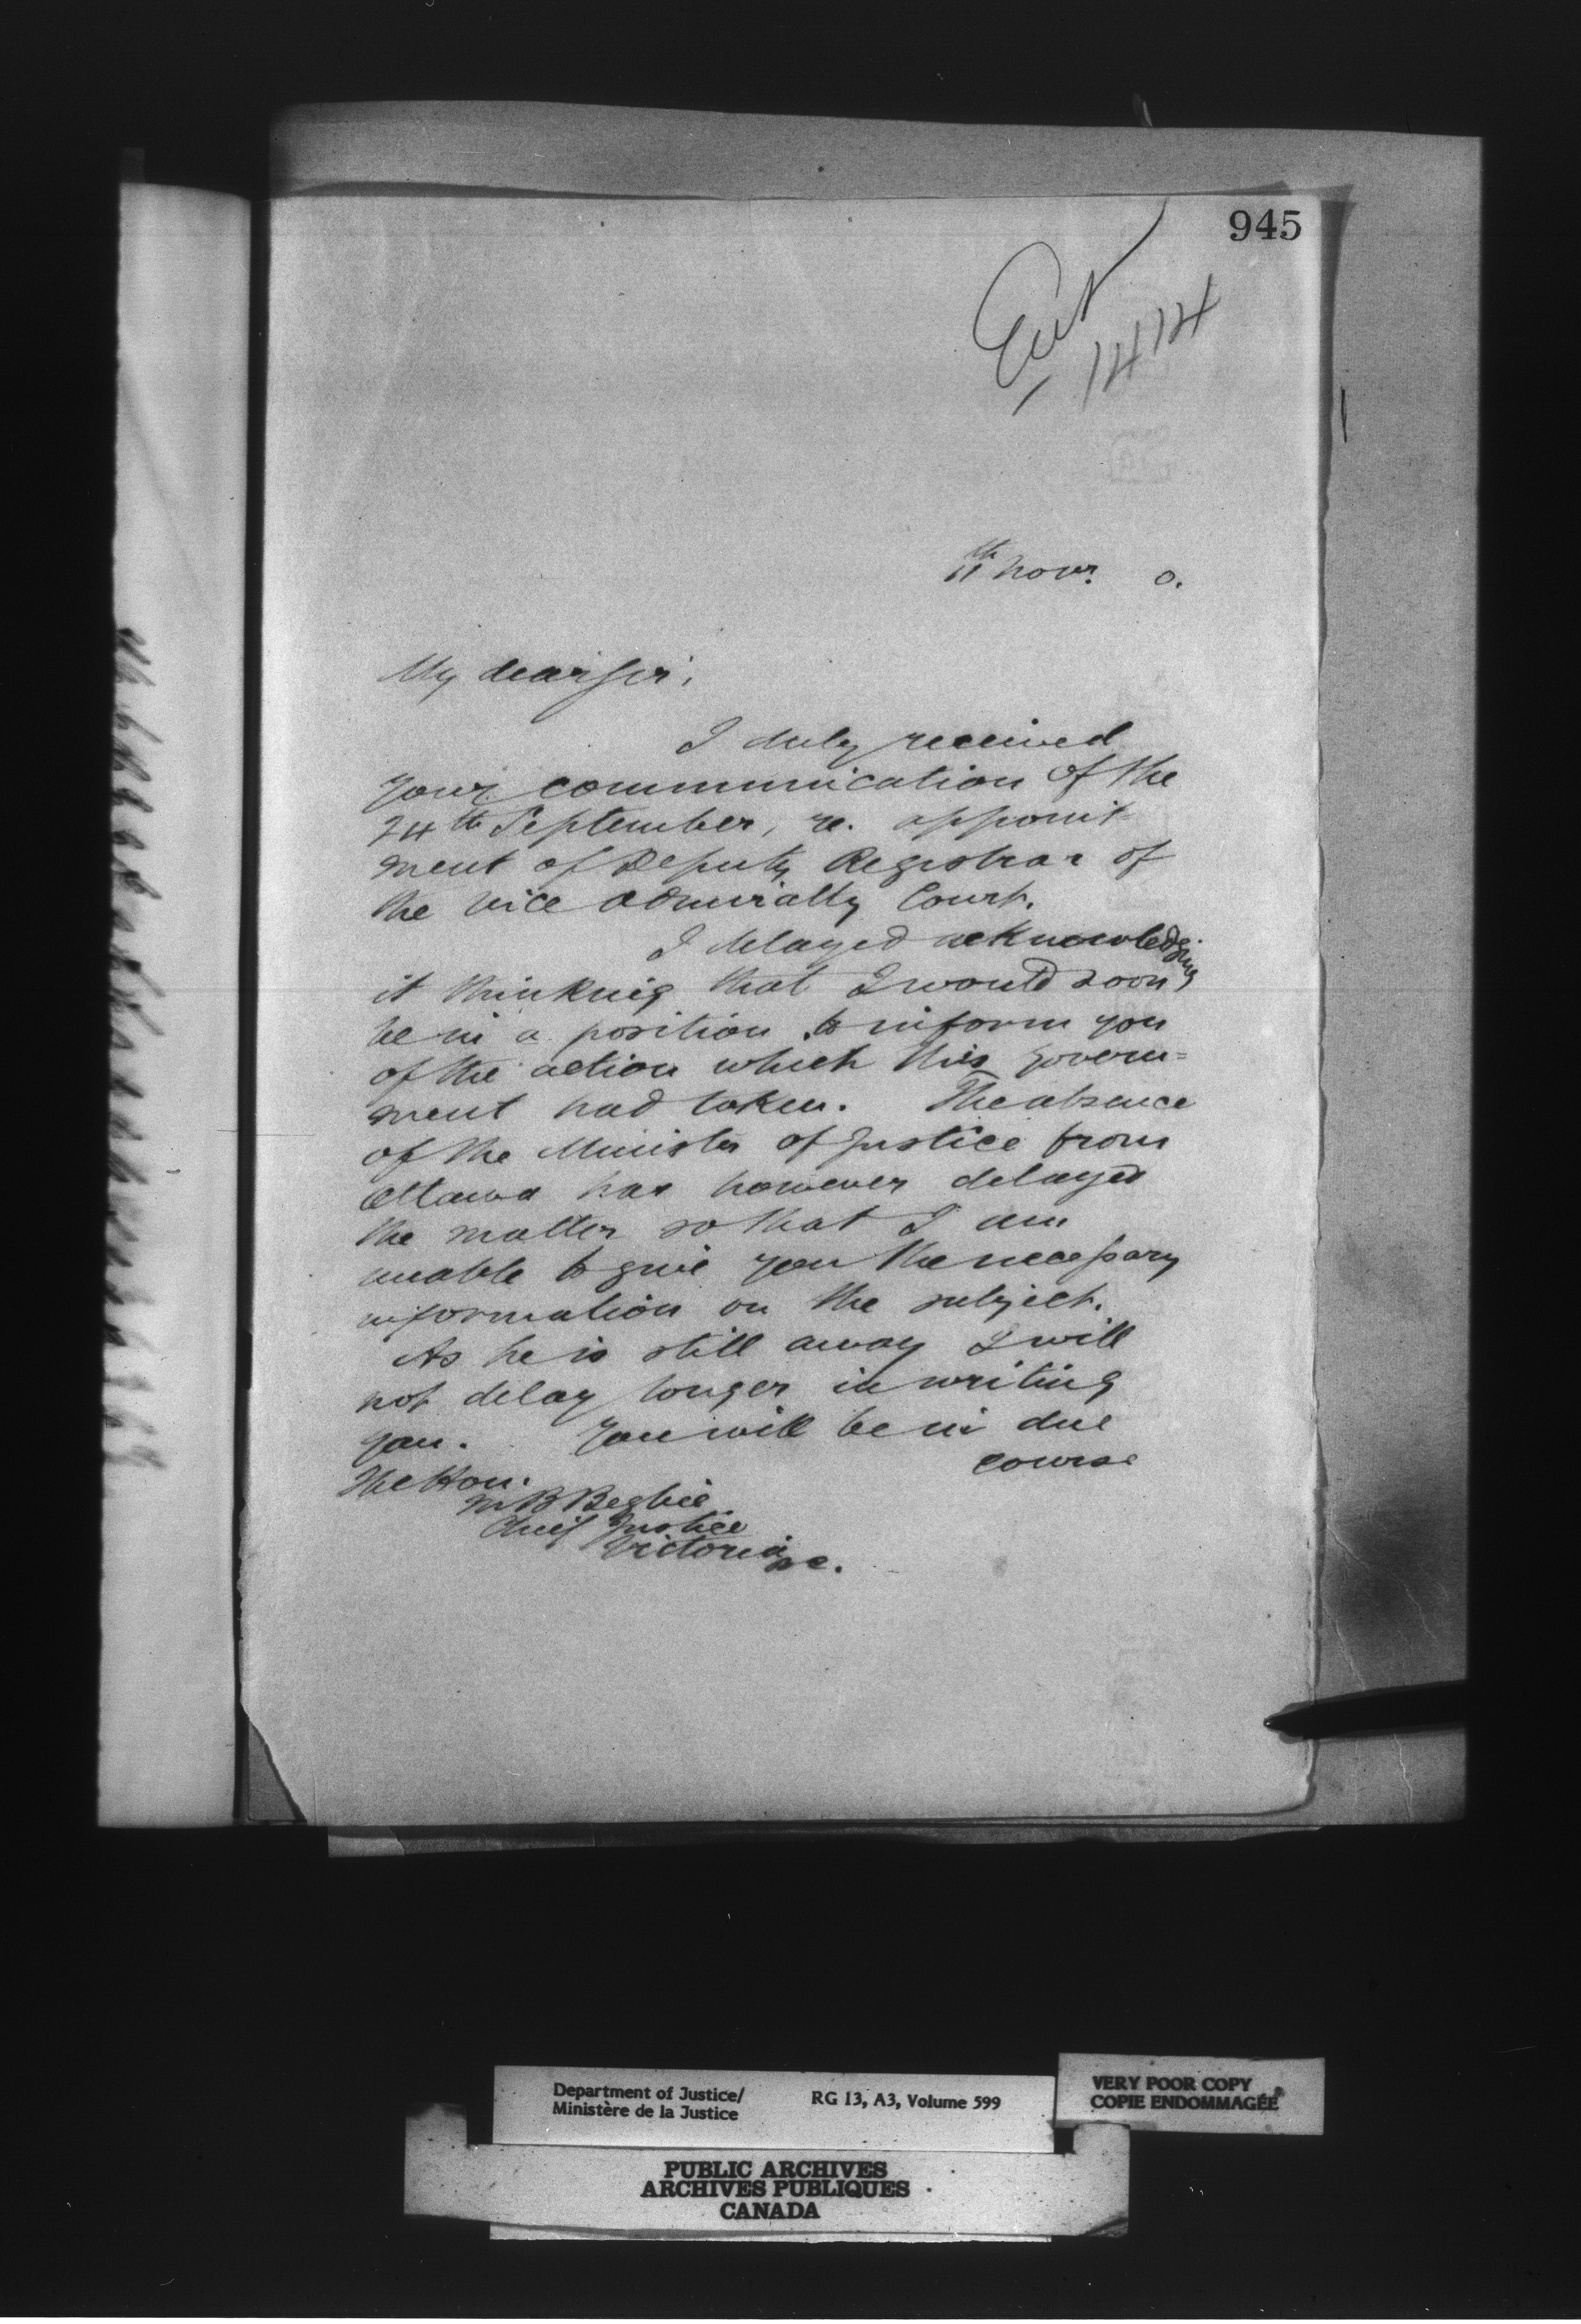 945
Ent
1414
11th Novr. 0.
My dear Sir,
I duly received
your communication of the
24th September, re. appoint-
ment of Deputy Registrar of
the Vice Admiralty Court.
I delayed acknowledging
it thinking that I would soon
be in a position to inform you
of the action which this govern=
ment had taken. The absence
of the Minister of Justice from
Ottawa has however delayed
the matter so that I am
unable to give you the necessary
information on the subject.
As he is still away I will
not delay longer in writing
you. You will be in due
course
The Hon.
M B Begbie
Chief Justice
Victoria B.C.
Department of Justice/
Ministère de la Justice
RG 13, A3, Volume 599
VERY POOR COPY
COPIE ENDOMMAGÉE
PUBLIC ARCHIVES
ARCHIVES PUBLIQUES
CANADA